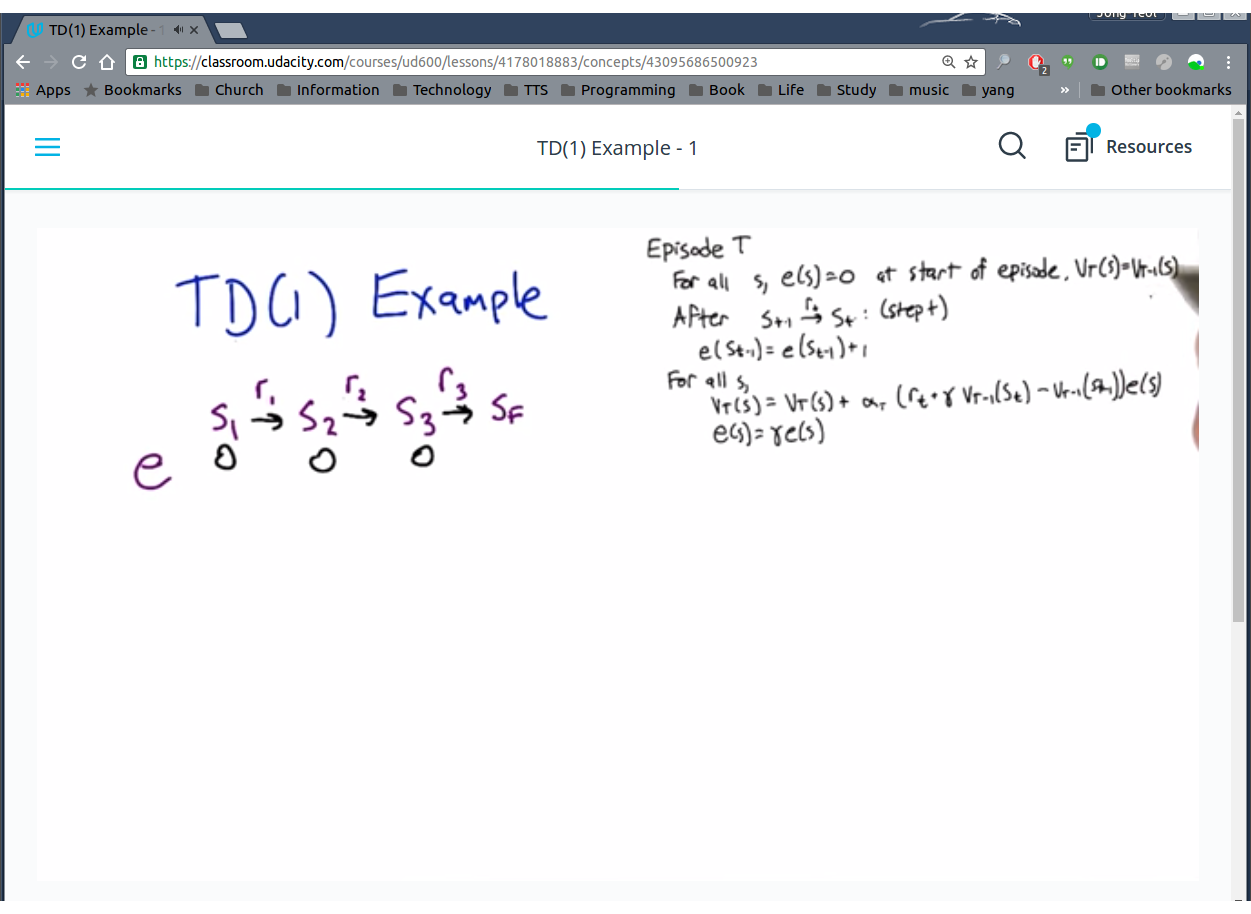 TD(1) Example - 1
Jong Yeol
https://classroom.udacity.com/courses/ud600/lessons/4178018883/concepts/43095686500923
2
Apps Bookmarks Church Information Technology TTS Programming Book Life Study music yang » Other bookmarks
TD(1) Example - 1
Resources
TD(1) Example
r₁ r₂ r₃
S₁ → S₂ → S₃ → SF
e 0 0 0
Episode T
For all s, e(s)=0 at start of episode, VT(s)=VT-1(s)
After St-1 →rt St: (step t)
e(St-1)= e(St-1)+1
For all s,
VT(s)= VT(s)+ αT (rt+γ VT-1(St) - VT-1(St-1))e(s)
e(s)= γe(s)